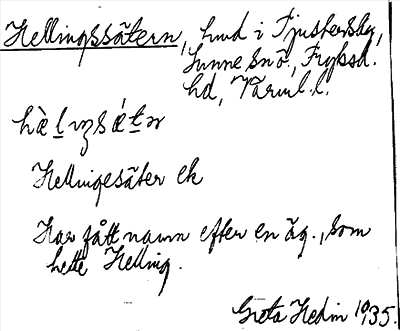 Hellingssätern, hmd i Tjustersby,
Sunne snö, Fryksd.
hd, Värml. l.
Hellingesäter ek
Har fått namn efter en äg., som
hette Helling.
Greta Hedin 1935.